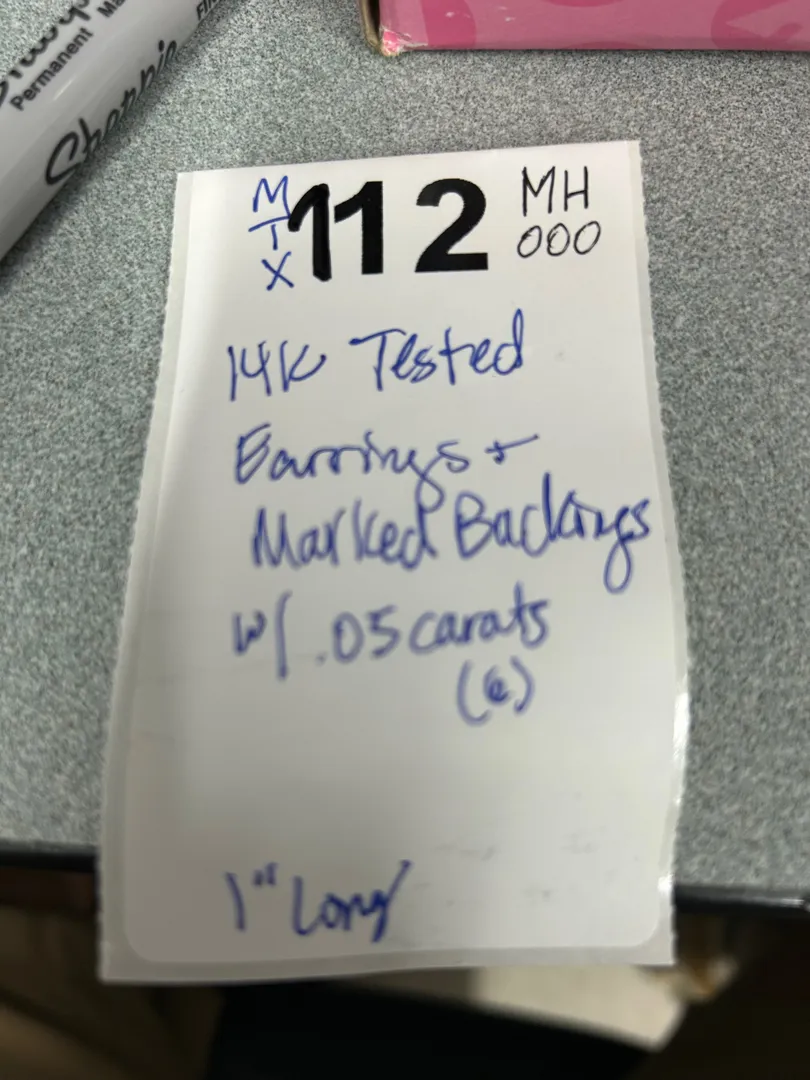 Permanent Ma
Sharpie
MTX 112 MH
000
14K Tested
Earrings +
Marked Backings
w/ .05 carats
(6)
1" Long